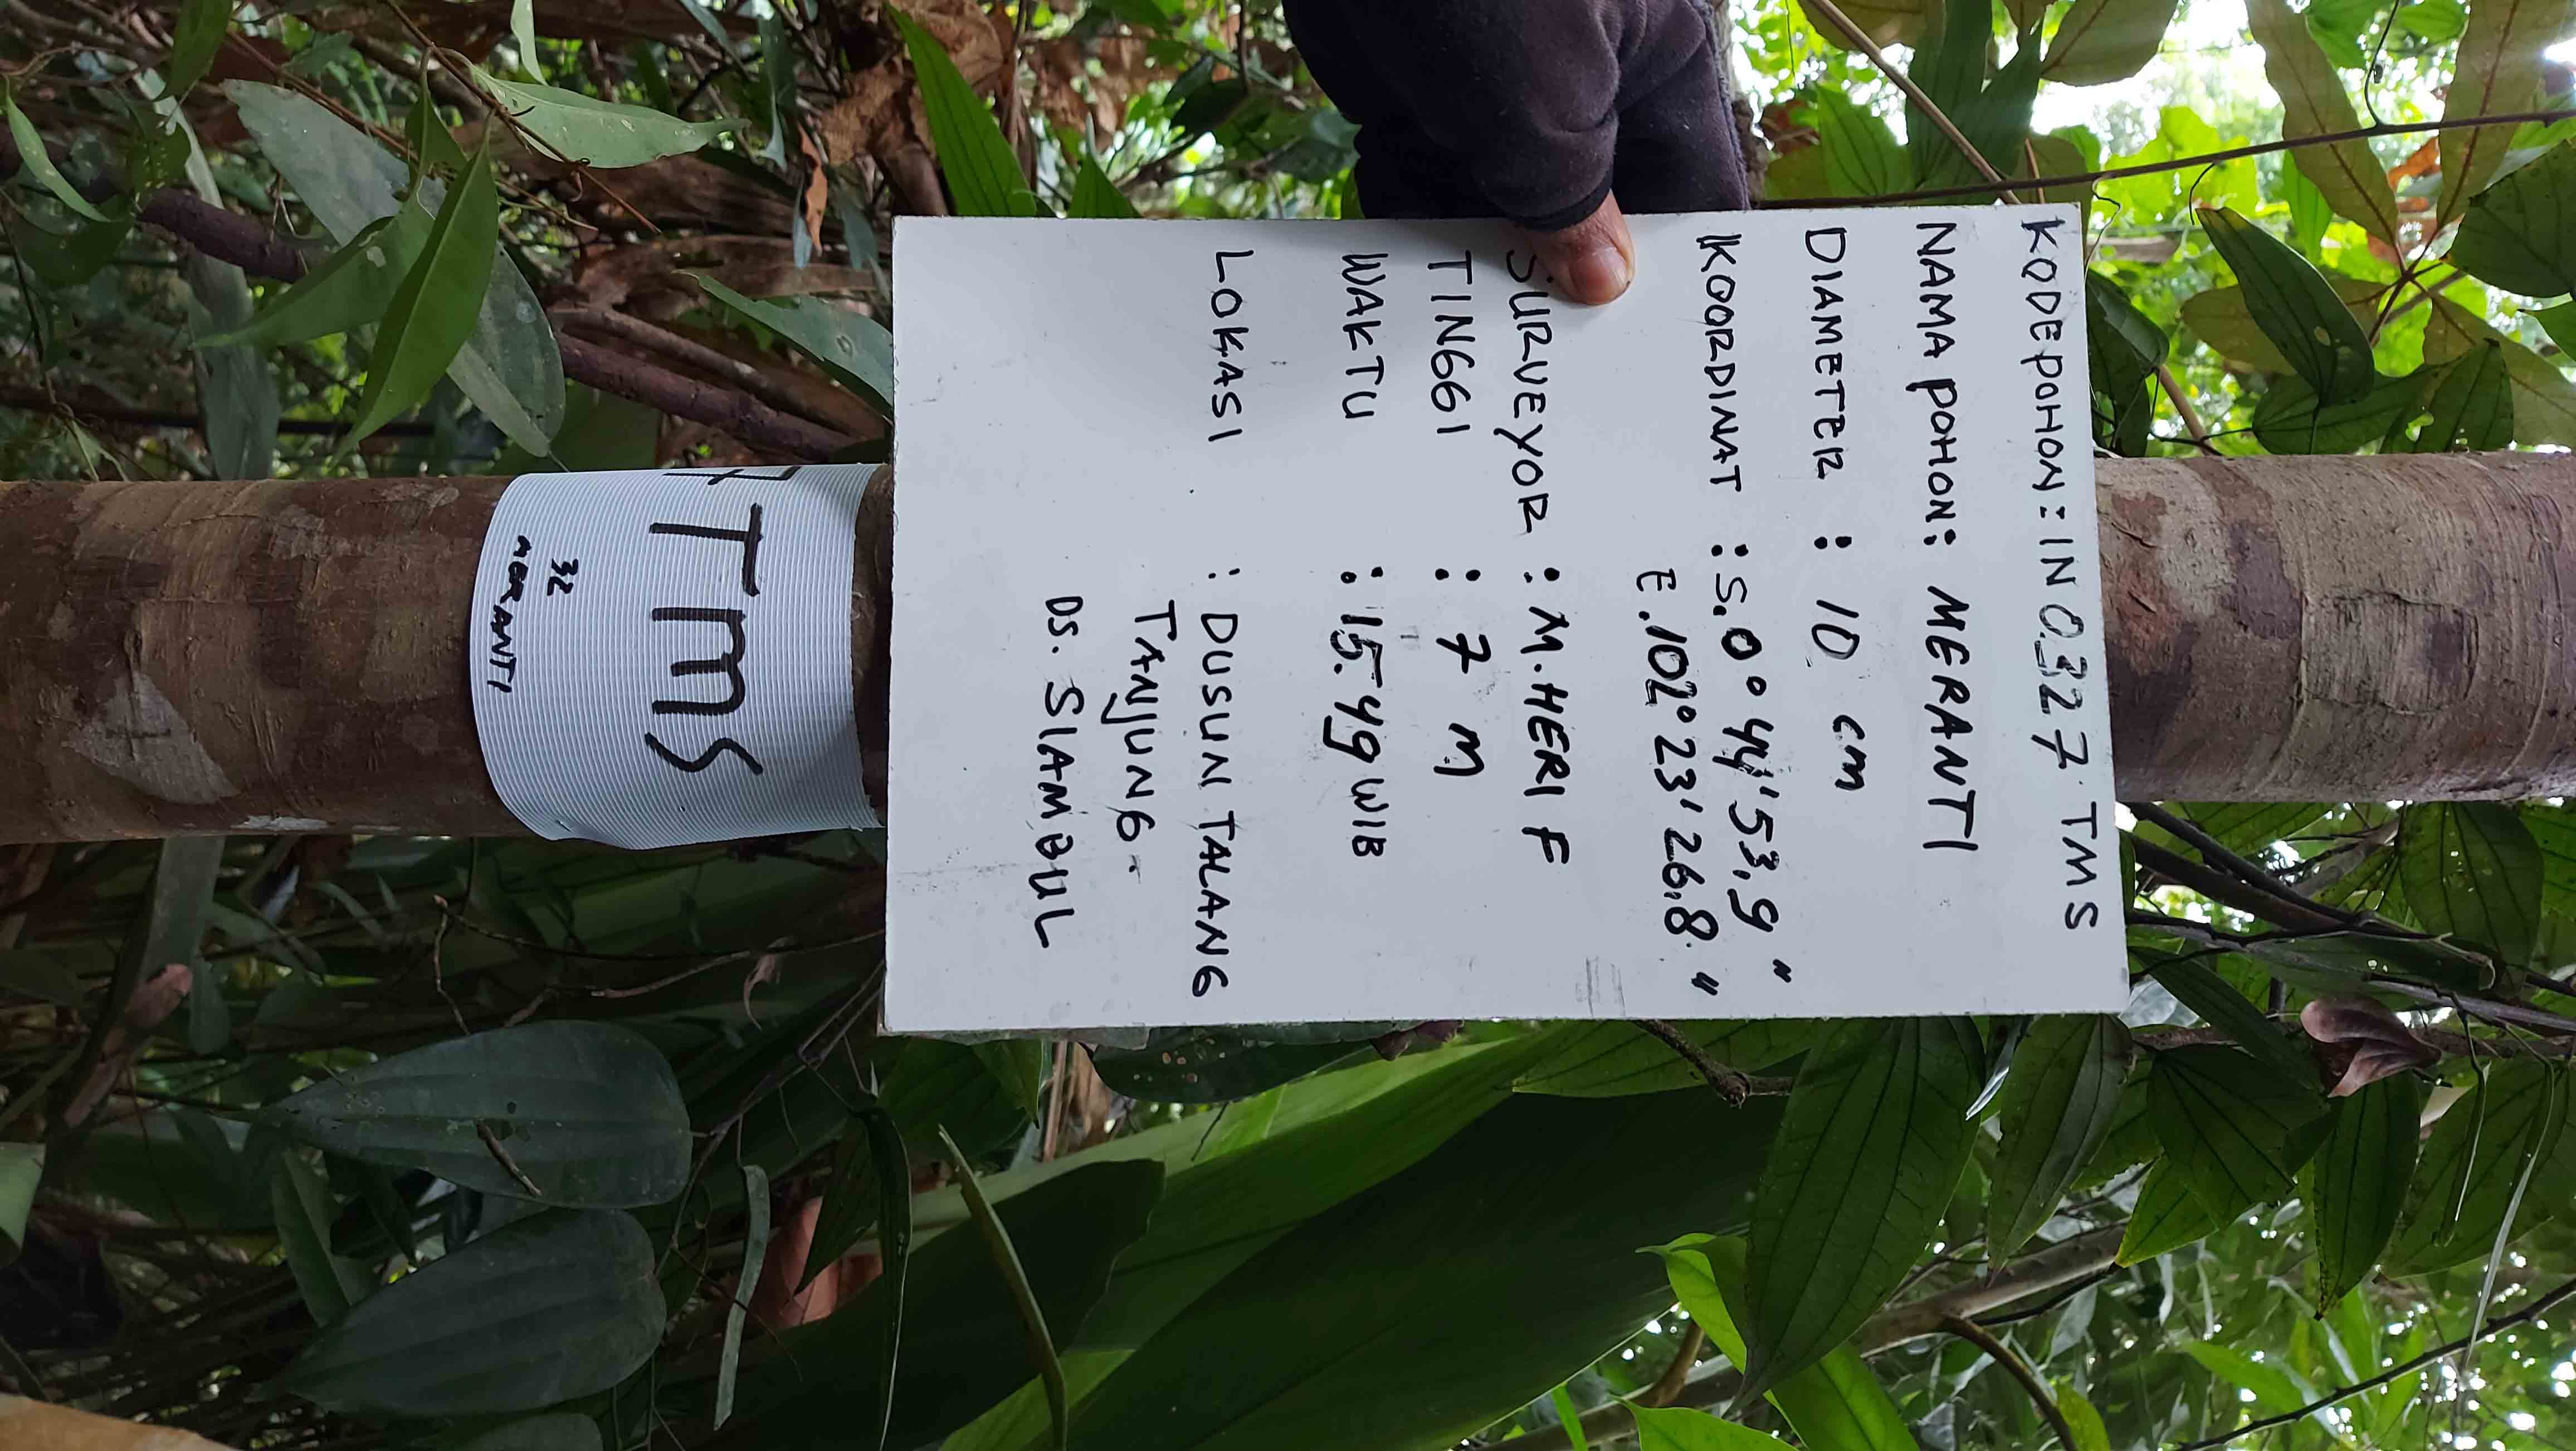 KODE POHON : IN 0.327 TMS
NAMA POHON : MERANTI
DIAMETER : 10 cm
KOORDINAT : S.0° 44' 53,9 "
E.102° 23' 26,8 "
SURVEYOR : M.HERI F
TINGGI : 7 M
WAKTU : 15.49 WIB
LOKASI : DUSUN TALANG
TANJUNG.
DS. SIAMBUL
7 TMS
32
MERANTI